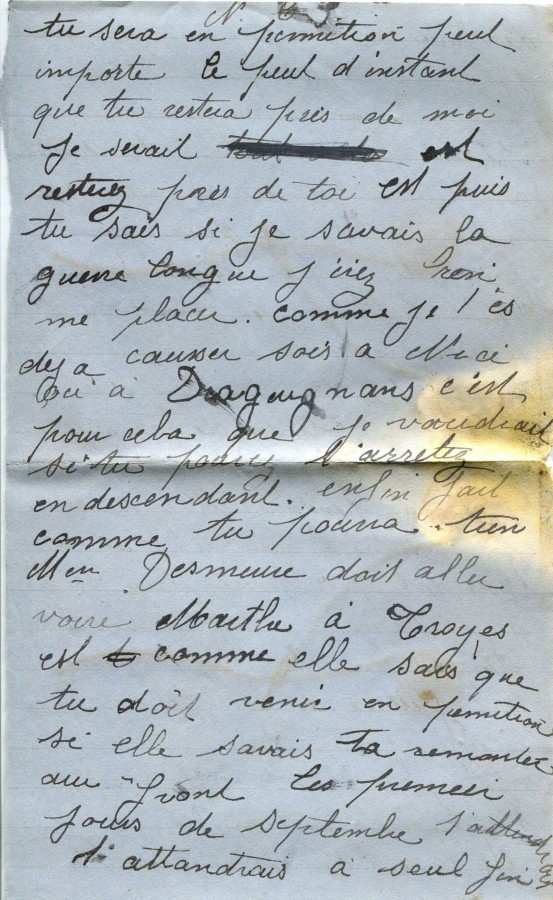 N. 3
tu sera en permition peut
importe le peut d'instant
que tu restera près de moi
Je serait est
restuez près de toi est puis
tu sais si je savais la
guerre longue j'irez bien
me placer. comme je t'es
deja causser sois a Nice
ou à Draguignans c'est
pour cela que je voudrait
si tu pouvez t'arretez
en descendant. enfin fait
comme tu poura. tien
Men Desmeure doit aller
voire Marthe à Troyes
est comme elle sais que
tu doit venir en permition
si elle savais ta remontée
au front les premier
jours de septembre
t'attandrais à seul fin